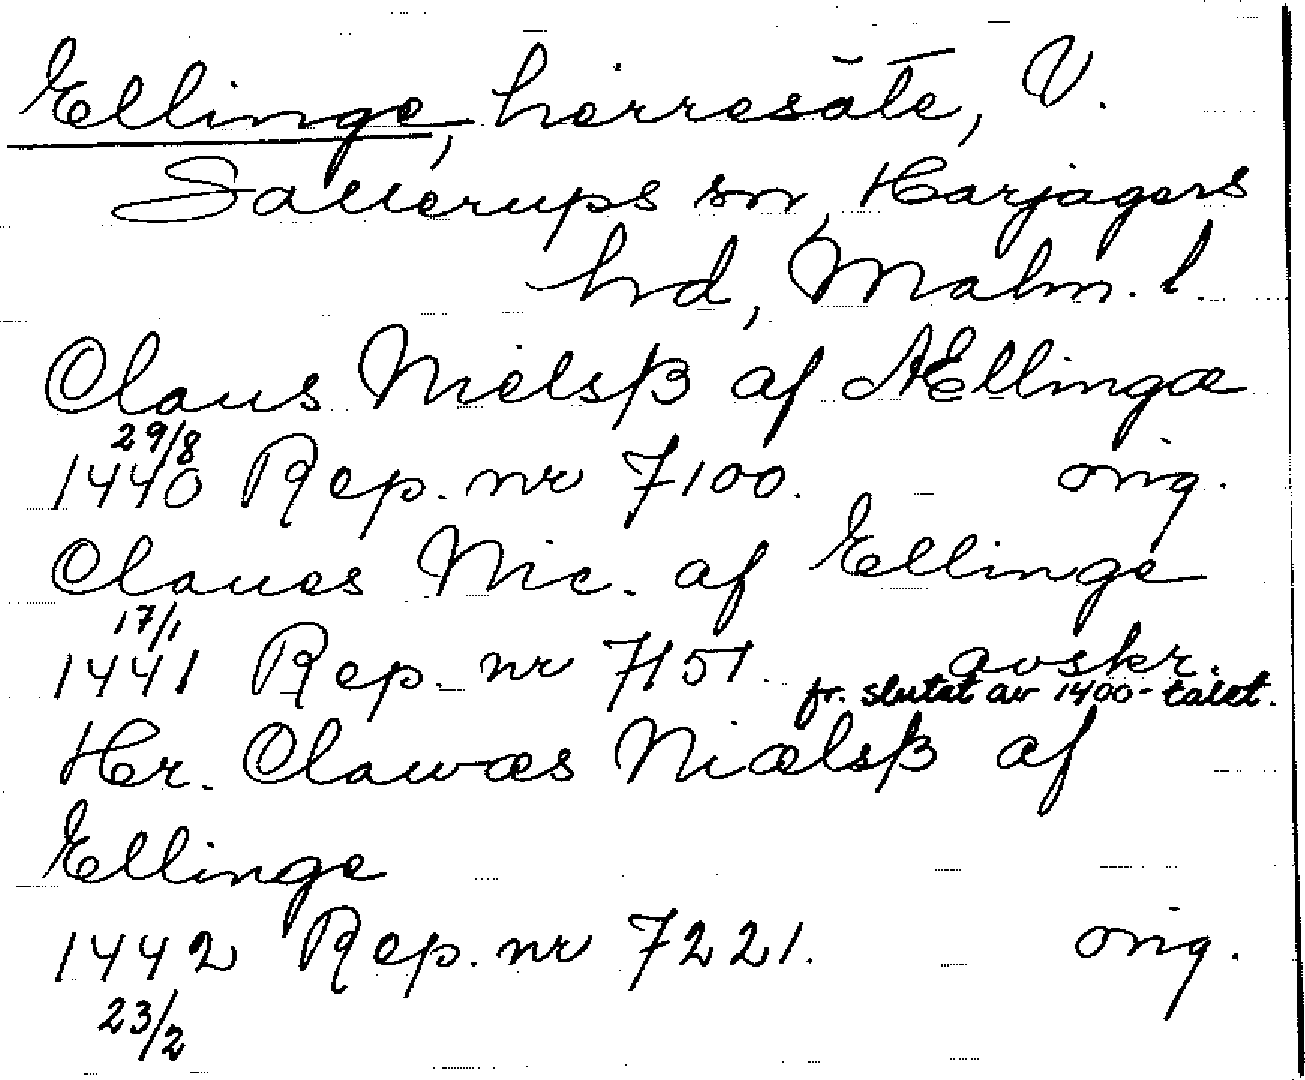 Ellinge, herresäte, V.
Sallerups sn, Harjagers
hrd, Malm. l.
Claus Nielsß af Ællingæ
29/8
1440 Rep. nr 7100. orig.
Claues Nic. af Ellinge
17/1
1441 Rep. nr 7151. avskr.
fr. slutet av 1400-talet.
Her. Clawæs Niælsß af
Ellinge
1442 Rep. nr 7221. orig.
23/2